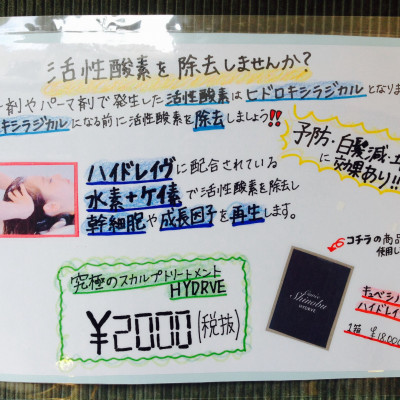 活性酸素を除去しませんか?
ー剤やパーマ剤で発生した活性酸素はヒドロキシラジカルとなりま
キシラジカルになる前に活性酸素を除去しましょう!!
予防・白髪減・
に効果あり!!
ハイドレイヴに配合されている
水素+ケイ素で活性酸素を除去し
幹細胞や成長因子を再生します。
コチラの商
使用し
究極のスカルプトリートメント
HYDRVE
¥2000(税抜)
Shinobu
HYDRVE
キュペシノ
ハイドレイ
1箱 ¥18,000